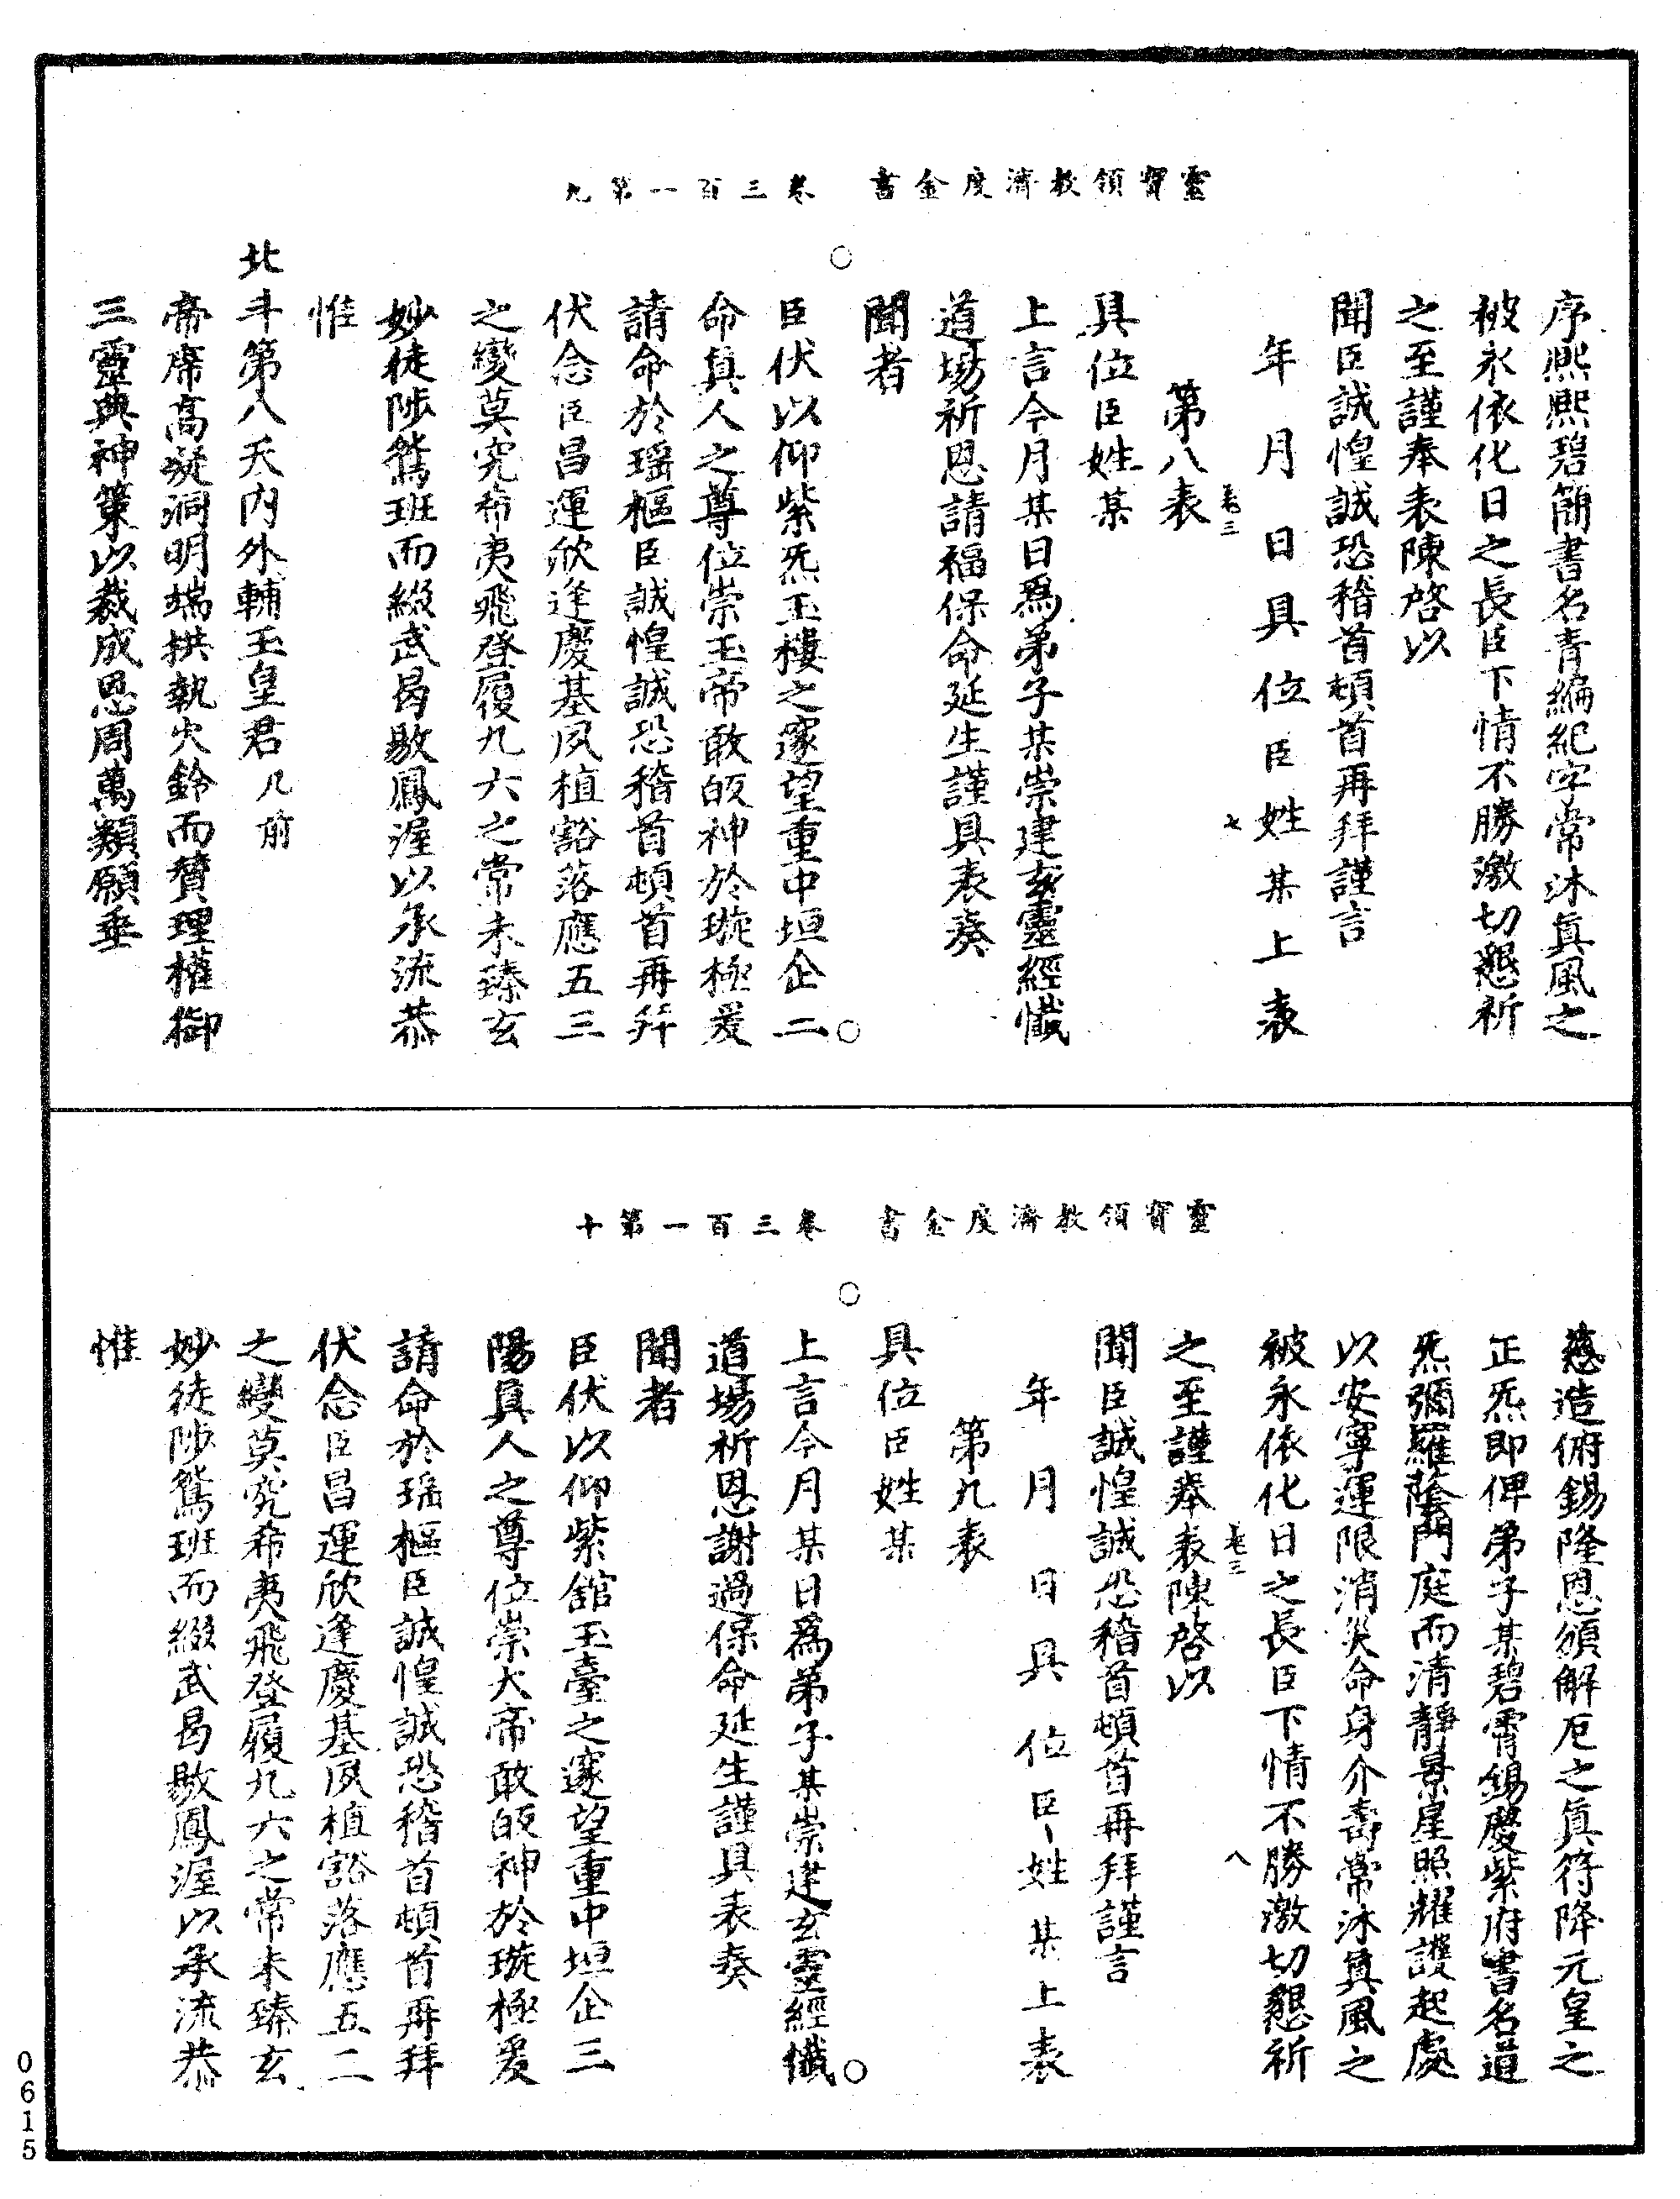 靈寶領教濟度金書　卷三百一第九
序熙熙碧簡書名青編紀字常沐眞風之
被永依化日之長臣下情不勝激切懇祈
之至謹奉表陳啓以
聞臣誠惶誠恐稽首頓首再拜謹言
年　月　日具位臣姓某上表
卷三　七
第八表
具位臣姓某
上言今月某日爲弟子某崇建玄靈經懺
道場祈恩請福保命延生謹具表奏
聞者
臣伏以仰紫炁玉樓之邃望重中垣企二
命眞人之尊位崇玉帝敢皈神於璇極爰
請命於瑤樞臣誠惶誠恐稽首頓首再拜
伏念臣昌運欣逢慶基夙植豁落應五三
之變莫究希夷飛登履九六之常未臻玄
妙徒陟鵷班而綴武曷敭鳳渥以承流恭
惟
北斗第八天內外輔玉皇君几前
帝席高凝洞明端拱執火鈴而贊理權御
三靈典神策以裁成恩周萬類願垂
靈寶領教濟度金書　卷三百一第十
慈造俯錫隆恩頒解厄之眞符降元皇之
正炁即俾弟子某碧霄錫慶紫府書名道
炁彌羅蔭門庭而清靜景星照耀護起處
以安寧運限消災命身介壽常沐眞風之
被永依化日之長臣下情不勝激切懇祈
卷三　八
之至謹奉表陳啓以
聞臣誠惶誠恐稽首頓首再拜謹言
年　月　日具位臣姓某上表
第九表
具位臣姓某
上言今月某日爲弟子某崇建玄靈經懺
道場祈恩謝過保命延生謹具表奏
聞者
臣伏以仰紫舘玉臺之邃望重中垣企三
陽眞人之尊位崇大帝敢皈神於璇極爰
請命於瑤樞臣誠惶誠恐稽首頓首再拜
伏念臣昌運欣逢慶基夙植豁落應五二
之變莫究希夷飛登履九六之常未臻玄
妙徒陟鵷班而綴武曷敭鳳渥以承流恭
惟
0615